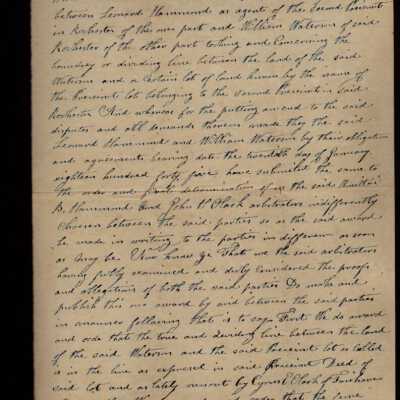 between Leonard Hammond as agent of the Second Precinct
in Rochester of the one part and William Watrous of said
Rochester of the other part touching and concerning the
boundary or dividing line between the land of the said
Watrous and a certain lot of land known by the name of
the Precinct lot belonging to the second Precinct in said
Rochester And whereas for the putting an end to the said
disputes and all demands thereon made they the said
Leonard Hammond and William Watrous by their obligation
and agreements bearing date the twentieth day of January
eighteen hundred forty five have submitted the same to
the order and final determination of us the said
B. Hammond and John H Clark arbitrators indifferently
chosen between the said parties so as the said award
be made in writing to the parties in difference as soon
as may be Now know ye that we the said arbitrators
having fully examined and duly considered the proofs
and allegations of both the said parties Do make and
publish this our award by and between the said parties
in manner following that is to say First We do award
and order that the true and dividing line between the land
of the said Watrous and the said Precinct lot so called
is in the line as expressed in said Precinct Deed of
said lot and as lately run out by Cyrus E Clark of Fairhaven
order that the same